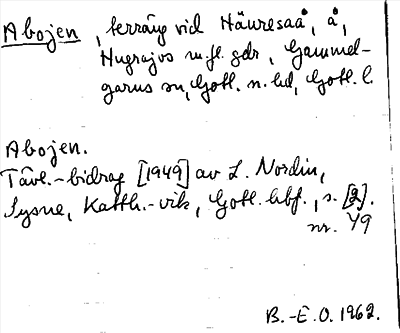 Abojen, terräng vid Hauresaå, å,
Hugrajvs m.fl. gdr, Gammel-
garns sn, Gotl. n. hd, Gotl. l.
Abojen.
Tävl.-bidrag [1949] av L. Nordin,
Sysne, Katth.-vik, Gotl. hbf., s. [2].
nr. 49
B.-E.O. 1962.